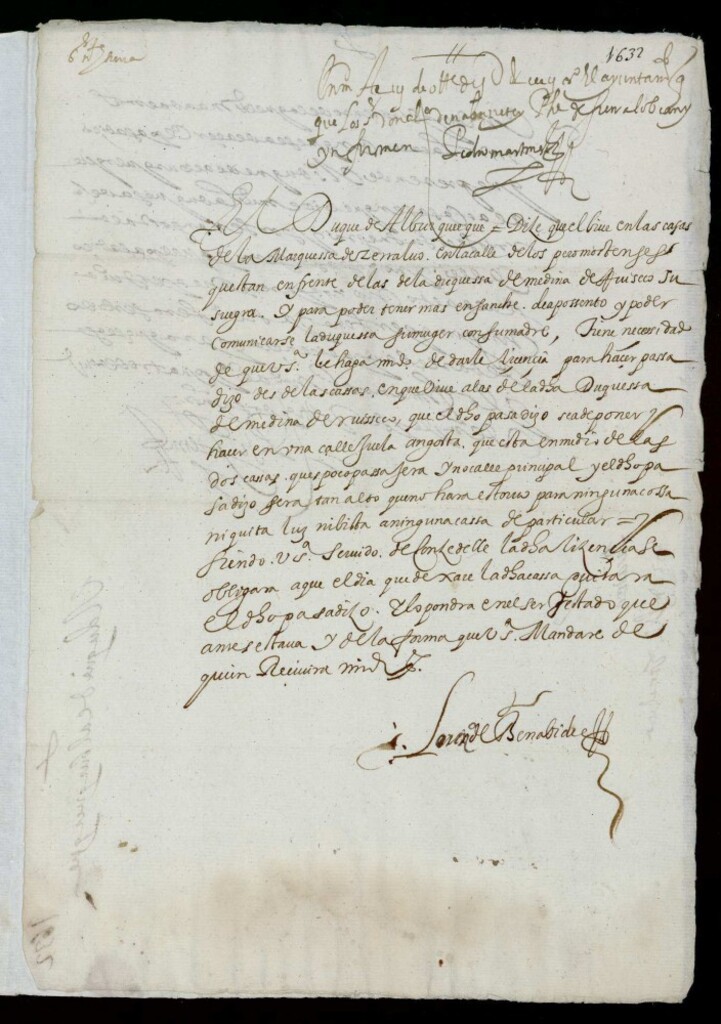 1632
que los
ynformen Pedro martinez
El Duque de Alburquerque = Dize que el bive en las casas
de la Marquessa de zerralvo. en la calle de los premostenses
que estan enfrente de las de la duquessa de medina de Ruisecco su
suegra. Y para poder tener mas ensanche. de apossento y poder
comunicarse la duquessa su muger con su madre, tiene necesidad
de que Vsª. le haga mrd. de darle licencia para hacer passa
dizo desde las cassas, en que Vive a las de la dha Duquessa
de medina de russeco, que el dho pasadizo se a de poner y
hacer en vna callejuela angosta. que esta en medio de las
dos cassas. que es poco passajera y no calle principal y el dho pa
sadizo sera tan alto que no hara estorvo para ninguna cossa
ni quita luz ni bista a ninguna cassa de particular = y
siendo. Vsª. servido. de conzedelle la dha lizencia se
obligara a que el dia que dexare la dha cassa quitara
el dho pasadizo. Y lo pondra en el ser y estado que
antes estava y de la forma que Vsª. Mandare de
quien Recivira mrd.
Lorenzo de Benabides